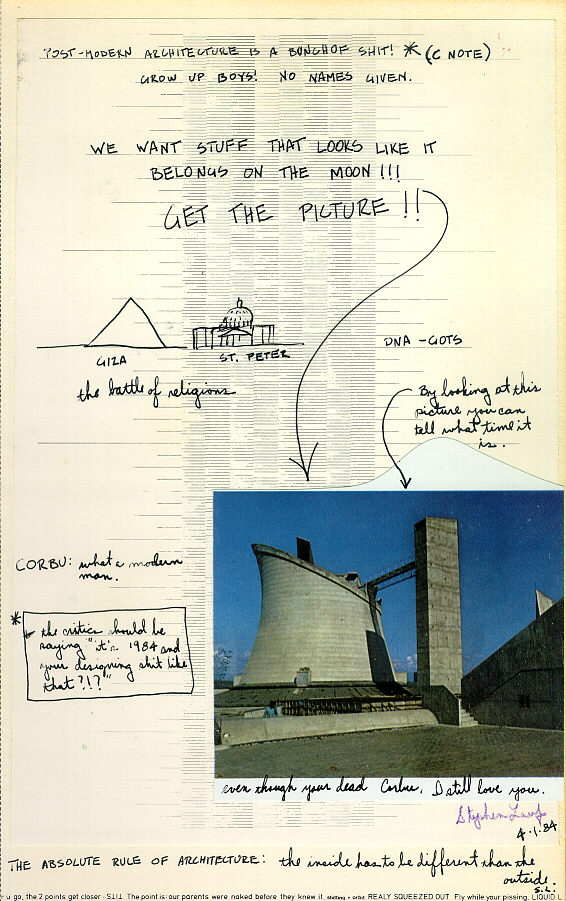 POST-MODERN ARCHITECTURE IS A BUNCH OF SHIT! * (C NOTE)
GROW UP BOYS! NO NAMES GIVEN.
WE WANT STUFF THAT LOOKS LIKE IT
BELONGS ON THE MOON!!!
GET THE PICTURE!!
GIZA
ST. PETER
DNA-GOTS
the battle of religions
By looking at this
picture you can
tell what time it
is.
CORBU: what a modern
man.
*
the critics should be
saying "it's 1984 and
your designing shit like
that?!?"
even though your dead Corbu, I still love you.
Stephen
4.1.84
THE ABSOLUTE RULE OF ARCHITECTURE: the inside has to be different than the
outside.
S.L.
u go, the 2 points get closer - S.L.L. The point is our parents were naked before they knew it. shitting + orbit REALY SQUEEZED OUT. Fly while your pissing, LIQUID L